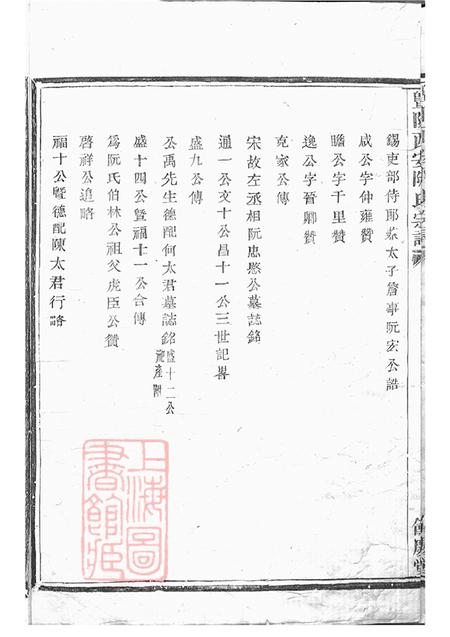 暨陽西安阮氏宗譜
錫吏部侍郎兼太子詹事阮宏公誥
咸公字仲雍贊
瞻公字千里贊
逸公字晉卿贊
克家公傳
宋故左丞相阮忠愍公墓誌銘
通一公文十公昌十一公三世記畧
盛九公傳
公禹先生德配何太君墓誌銘盛十二公
盛十四公暨福十一公合傳
為阮氏伯林公祖父虎臣公贊
啓祥公追略
福十公暨德配陳太君行略
餘慶堂
上海圖書館藏